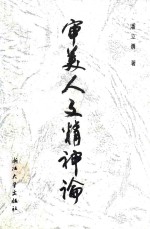 潘立勇 著
審美人文精神論
浙江大学出版社